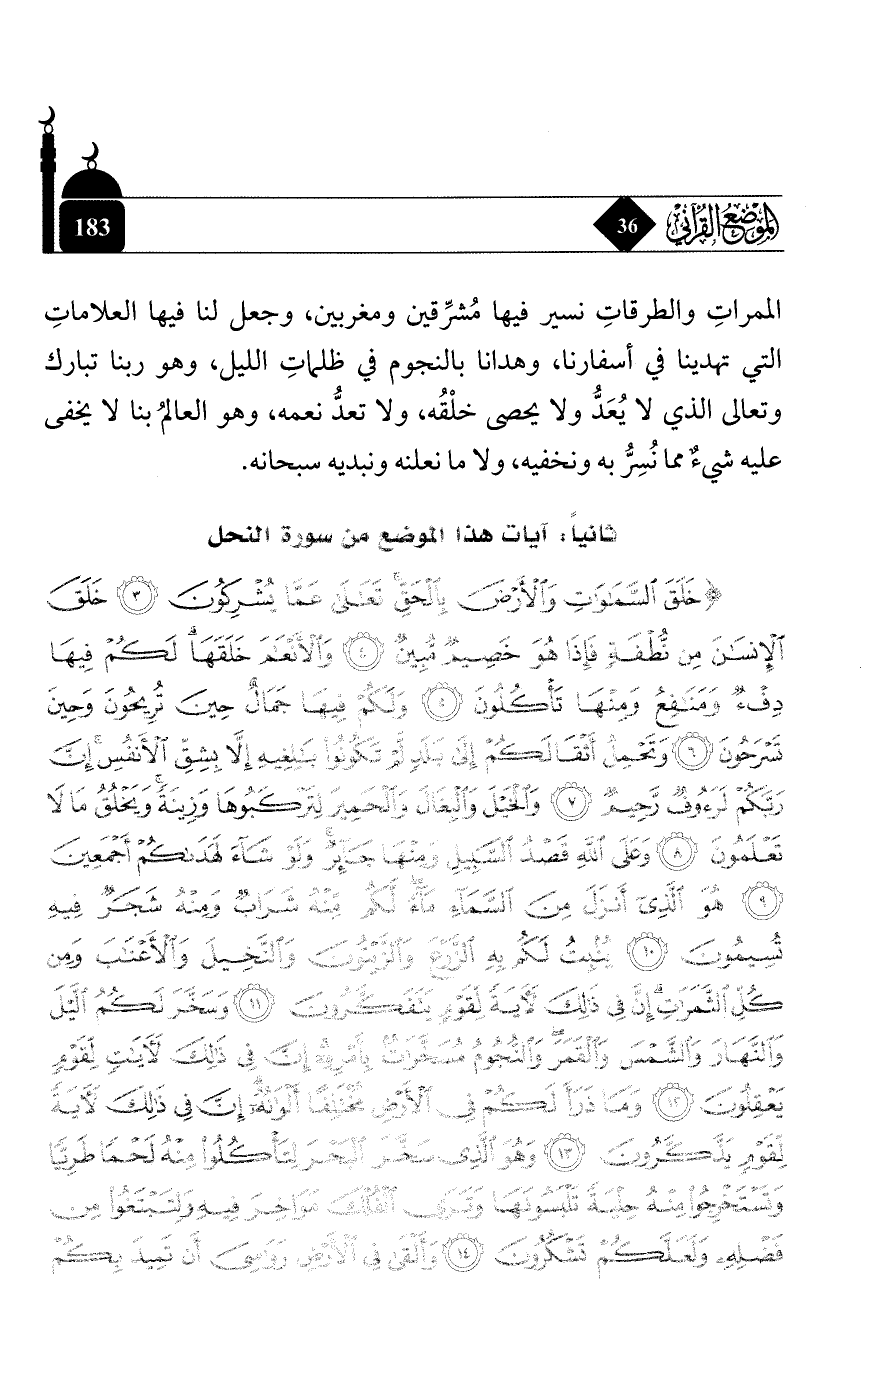 الموضع القرآني 36 183
الممراتِ والطرقاتِ نسير فيها مُشرِّقين ومغربين، وجعل لنا فيها العلاماتِ
التي تهدينا في أسفارنا، وهدانا بالنجوم في ظلماتِ الليل، وهو ربنا تبارك
وتعالى الذي لا يُعَدُّ ولا يحصى خلْقُه، ولا تعدُّ نعمه، وهو العالمُ بنا لا يخفى
عليه شيءٌ مما نُسِرُّ به ونخفيه، ولا ما نعلنه ونبديه سبحانه.
ثانياً: آيات هذا الموضع من سورة النحل
﴿خَلَقَ ٱلسَّمَٰوَٰتِ وَٱلْأَرْضَ بِٱلْحَقِّ ۚ تَعَٰلَىٰ عَمَّا يُشْرِكُونَ ٣ خَلَقَ
ٱلْإِنسَٰنَ مِن نُّطْفَةٍ فَإِذَا هُوَ خَصِيمٌ مُّبِينٌ ٤ وَٱلْأَنْعَٰمَ خَلَقَهَا ۗ لَكُمْ فِيهَا
دِفْءٌ وَمَنَٰفِعُ وَمِنْهَا تَأْكُلُونَ ٥ وَلَكُمْ فِيهَا جَمَالٌ حِينَ تُرِيحُونَ وَحِينَ
تَسْرَحُونَ ٦ وَتَحْمِلُ أَثْقَالَكُمْ إِلَىٰ بَلَدٍ لَّمْ تَكُونُوا۟ بَٰلِغِيهِ إِلَّا بِشِقِّ ٱلْأَنفُسِ ۚ إِنَّ
رَبَّكُمْ لَرَءُوفٌ رَّحِيمٌ ٧ وَٱلْخَيْلَ وَٱلْبِغَالَ وَٱلْحَمِيرَ لِتَرْكَبُوهَا وَزِينَةً ۚ وَيَخْلُقُ مَا لَا
تَعْلَمُونَ ٨ وَعَلَى ٱللَّهِ قَصْدُ ٱلسَّبِيلِ وَمِنْهَا جَآئِرٌ ۚ وَلَوْ شَآءَ لَهَدَىٰكُمْ أَجْمَعِينَ
٩ هُوَ ٱلَّذِىٓ أَنزَلَ مِنَ ٱلسَّمَآءِ مَآءً ۖ لَّكُم مِّنْهُ شَرَابٌ وَمِنْهُ شَجَرٌ فِيهِ
تُسِيمُونَ ١٠ يُنۢبِتُ لَكُم بِهِ ٱلزَّرْعَ وَٱلزَّيْتُونَ وَٱلنَّخِيلَ وَٱلْأَعْنَٰبَ وَمِن
كُلِّ ٱلثَّمَرَٰتِ ۗ إِنَّ فِى ذَٰلِكَ لَءَايَةً لِّقَوْمٍ يَتَفَكَّرُونَ ١١ وَسَخَّرَ لَكُمُ ٱلَّيْلَ
وَٱلنَّهَارَ وَٱلشَّمْسَ وَٱلْقَمَرَ ۖ وَٱلنُّجُومُ مُسَخَّرَٰتٌۢ بِأَمْرِهِۦٓ ۗ إِنَّ فِى ذَٰلِكَ لَءَايَٰتٍ لِّقَوْمٍ
يَعْقِلُونَ ١٢ وَمَا ذَرَأَ لَكُمْ فِى ٱلْأَرْضِ مُخْتَلِفًا أَلْوَٰنُهُۥٓ ۗ إِنَّ فِى ذَٰلِكَ لَءَايَةً
لِّقَوْمٍ يَذَّكَّرُونَ ١٣ وَهُوَ ٱلَّذِى سَخَّرَ ٱلْبَحْرَ لِتَأْكُلُوا۟ مِنْهُ لَحْمًا طَرِيًّا
وَتَسْتَخْرِجُوا۟ مِنْهُ حِلْيَةً تَلْبَسُونَهَا وَتَرَى ٱلْفُلْكَ مَوَاخِرَ فِيهِ وَلِتَبْتَغُوا۟ مِن
فَضْلِهِۦ وَلَعَلَّكُمْ تَشْكُرُونَ ١٤ وَأَلْقَىٰ فِى ٱلْأَرْضِ رَوَٰسِىَ أَن تَمِيدَ بِكُمْ